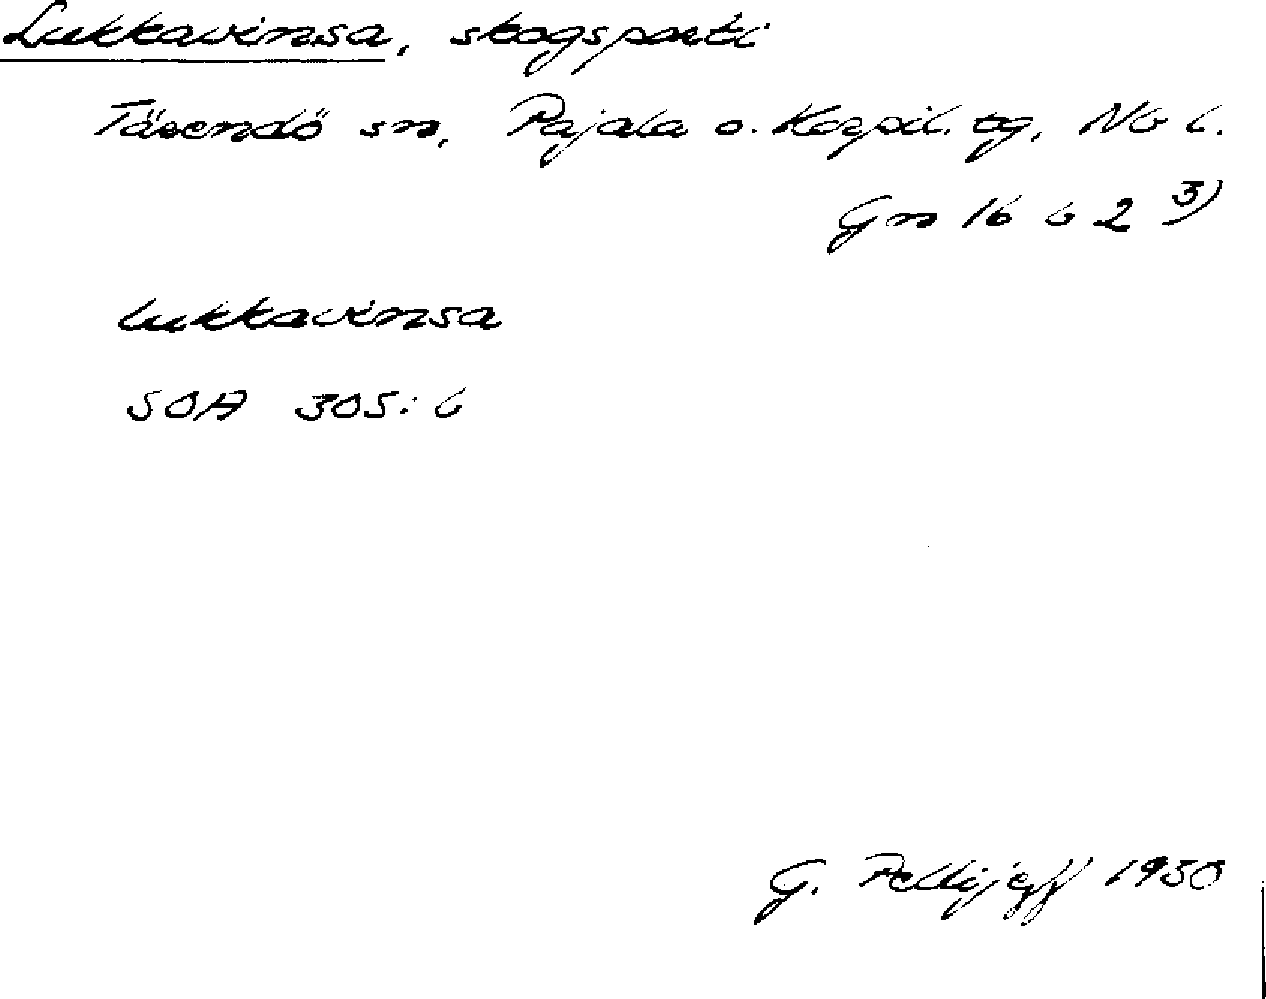 Lukkavinsa, skogsparti
Tärendö sn, Pajala o. Korpil. tg, Nb l.
Gn 16 b 2 3)
lukkavinsa
SOA 305: 6
G. Pellijeff 1950